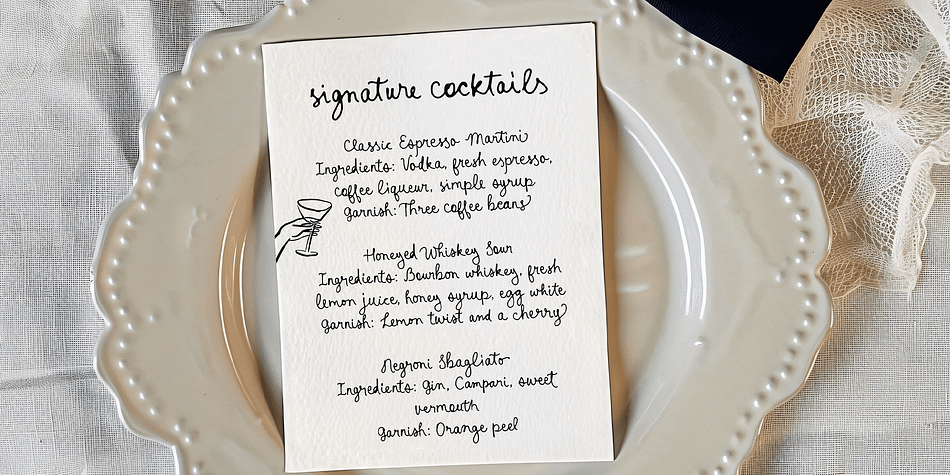 signature cocktails
Classic Espresso Martini
Ingredients: Vodka, fresh espresso,
coffee liqueur, simple syrup
Garnish: Three coffee beans
Honeyed Whiskey Sour
Ingredients: Bourbon whiskey, fresh
lemon juice, honey syrup, egg white
Garnish: Lemon twist and a cherry
Negroni Sbagliato
Ingredients: Gin, Campari, sweet
vermouth
Garnish: Orange peel